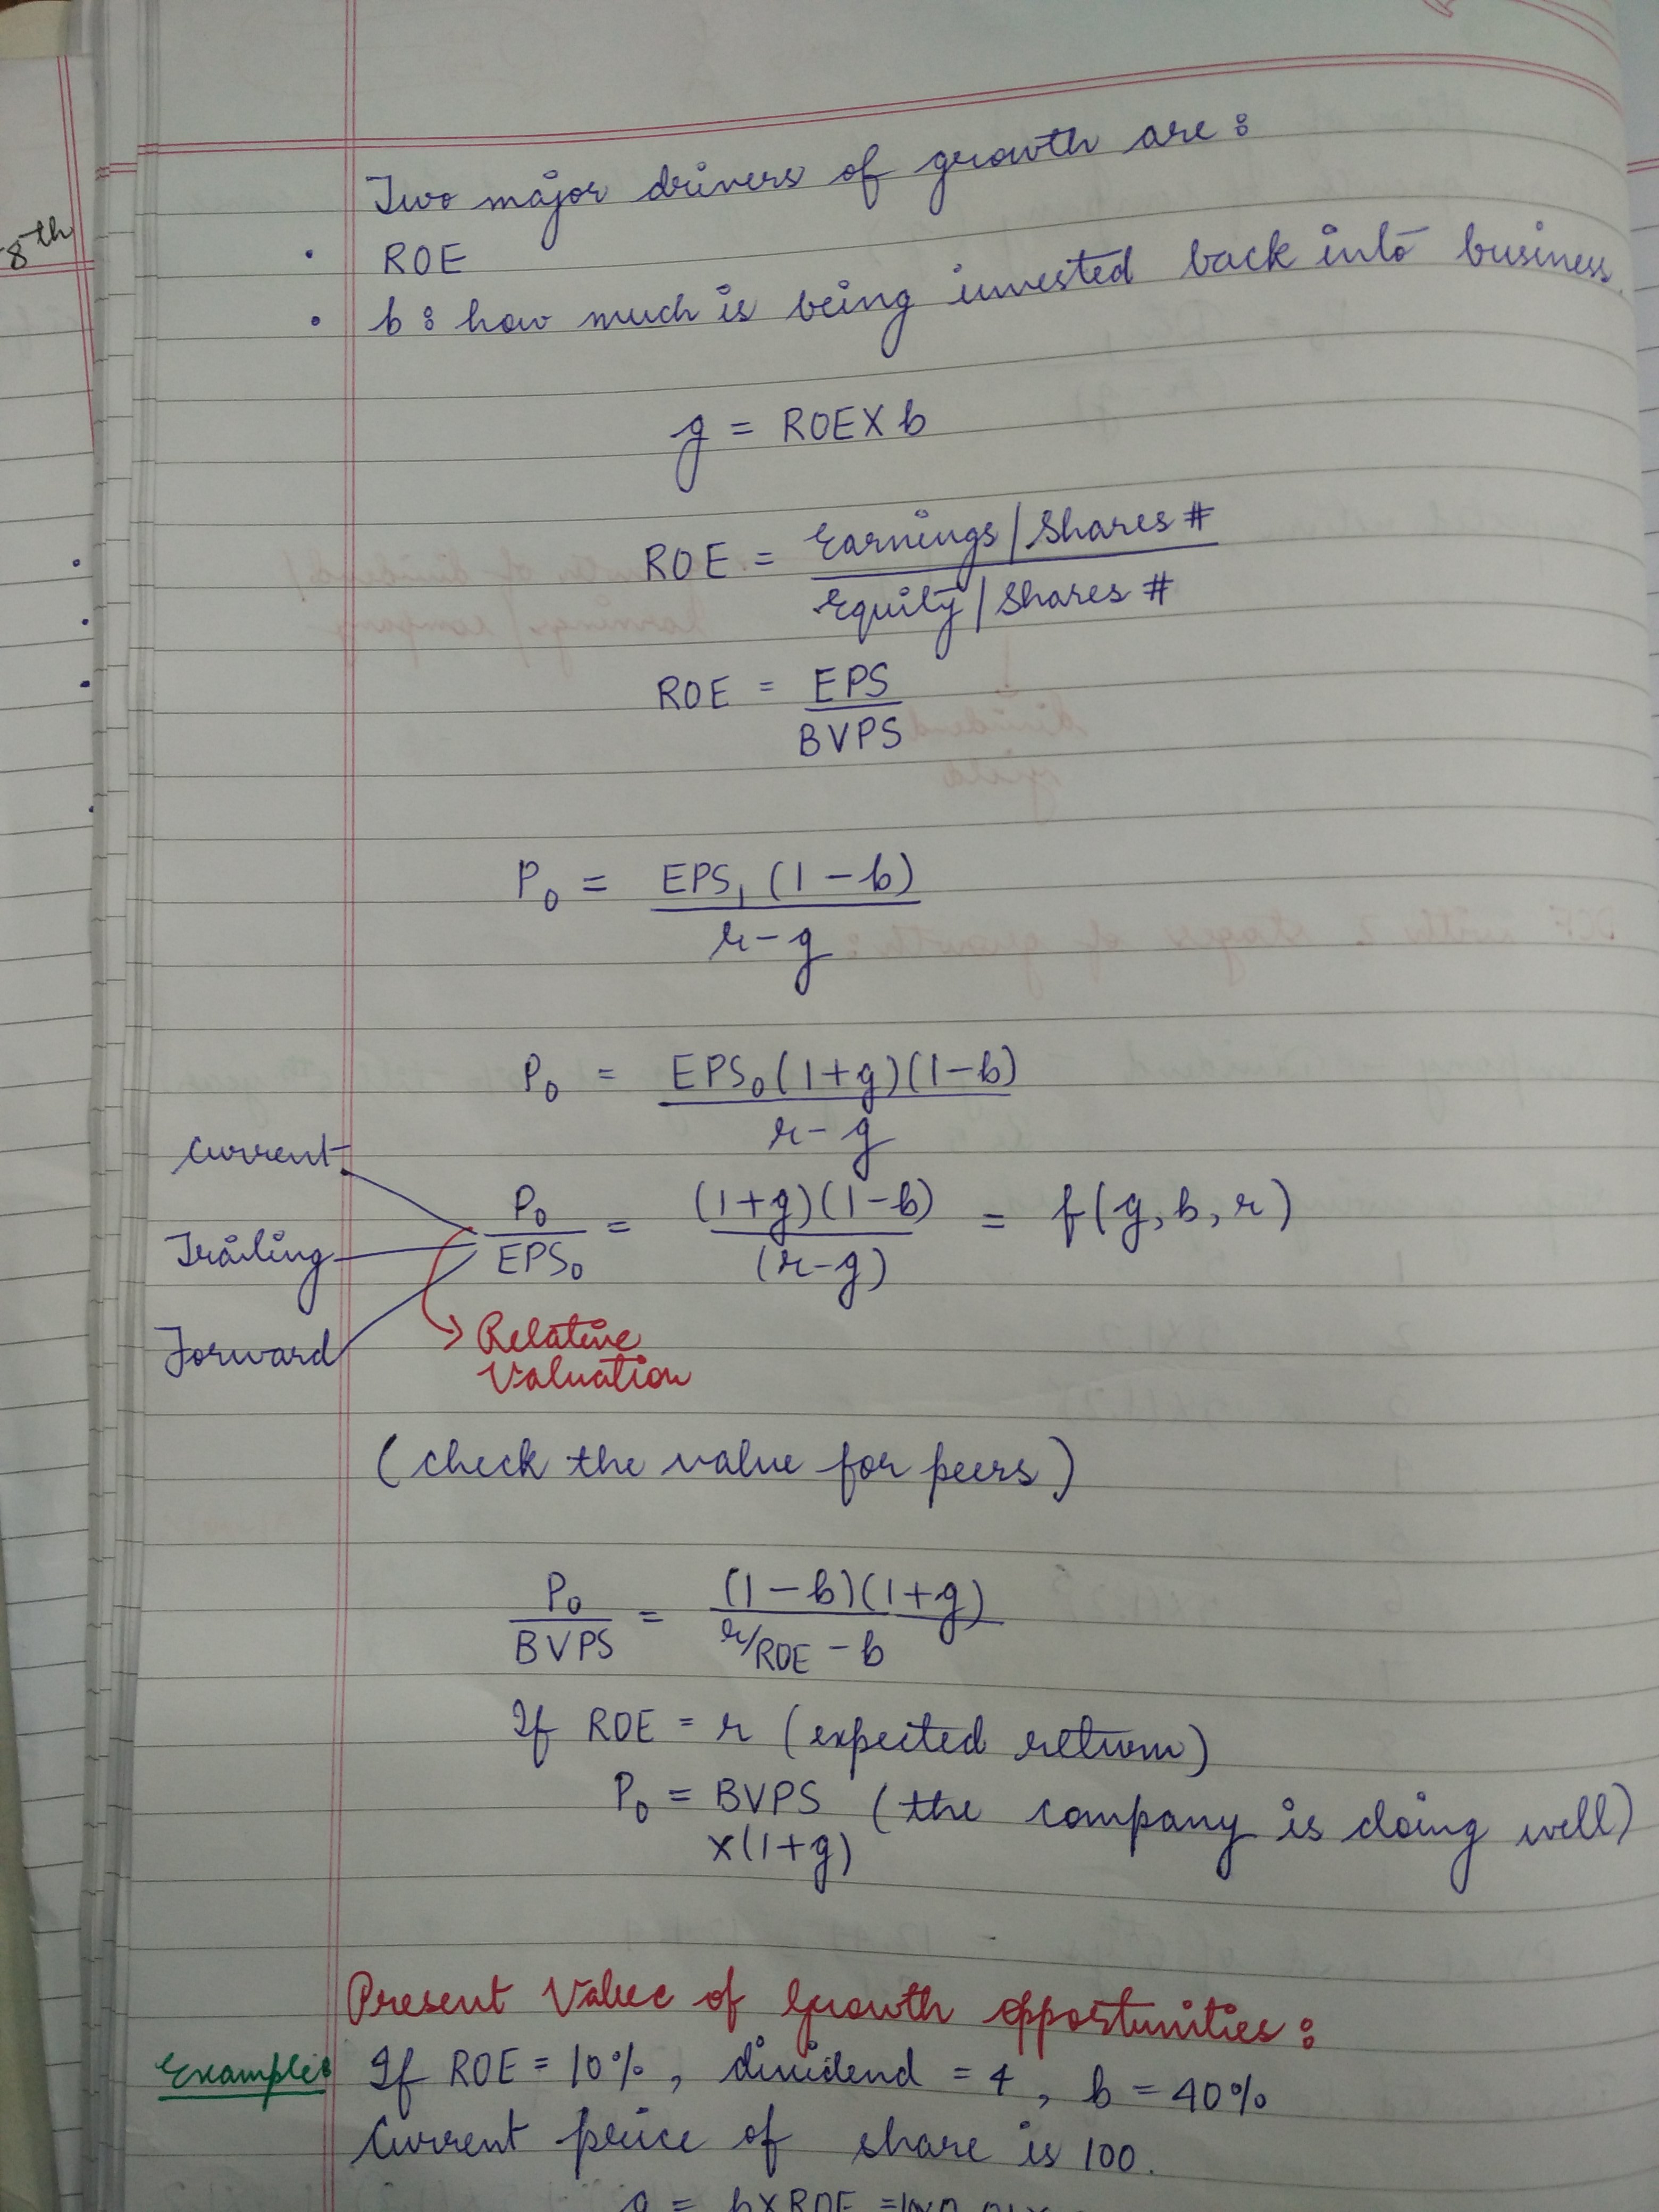 8th
Two major drivers of growth are:
• ROE
• b: how much is being invested back into business.
g = ROE X b
ROE = Earnings / Shares #
Equity / Shares #
ROE = EPS
BVPS
P₀ = EPS₁ (1 - b)
r - g
P₀ = EPS₀ (1+g)(1-b)
r - g
Current
Trailing
Forward
P₀ = (1+g)(1-b) = f(g, b, r)
EPS₀ (r-g)
Relative
Valuation
(check the value for peers)
P₀ = (1-b)(1+g)
BVPS r/ROE - b
If ROE = r (expected return)
P₀ = BVPS (the company is doing well)
x(1+g)
Present Value of Growth opportunities:
Example: If ROE = 10%, dividend = 4, b = 40%
Current price of share is 100.
g = b x ROE =